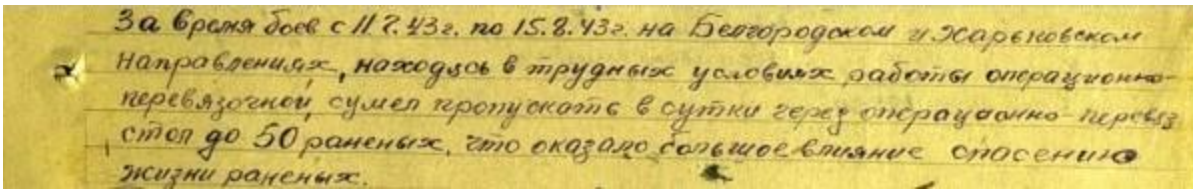 За время боев с 11.7.43г. по 15.8.43г. на Белгородском и Харьковском
направлениях, находясь в трудных условиях работы операционно-
перевязочной, сумел пропускать в сутки через операционно-перевяз
стол до 50 раненых, что оказало большое влияние спасению
жизни раненых.